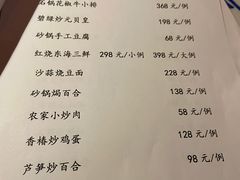 石锅花椒牛小排 368 元/例
碧绿炒元贝皇 198 元/例
砂锅手工豆腐 68 元/例
红烧东海三鲜 298 元/小例 398 元/大例
沙蒜烧豆面 228 元/例
砂锅焗百合 138 元/例
农家小炒肉 58 元/例
香椿炒鸡蛋 128 元/例
芦笋炒百合 98 元/例